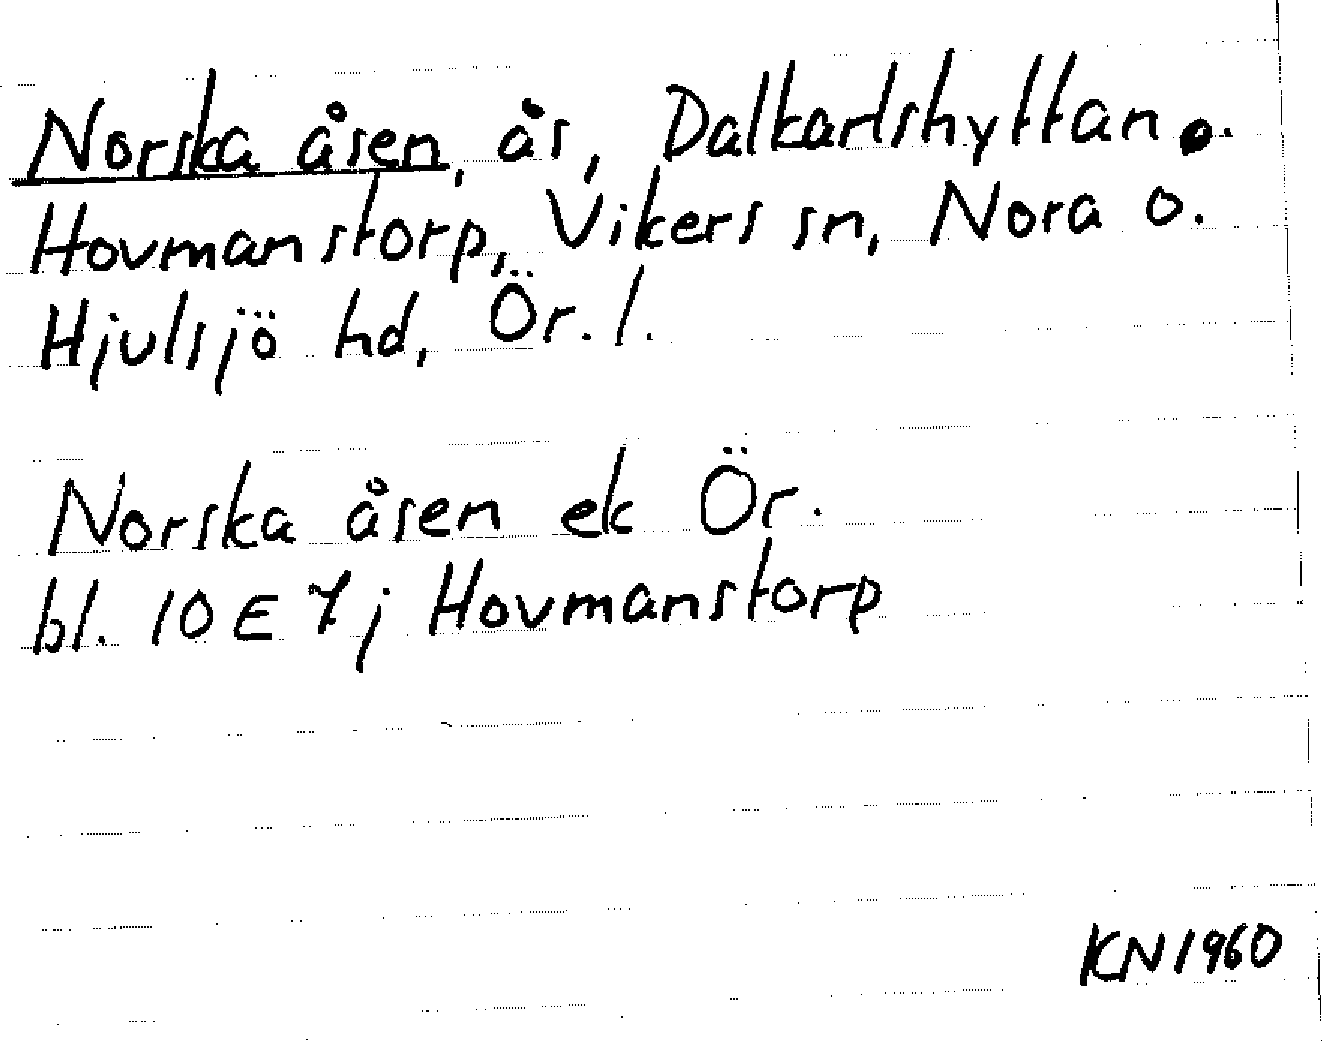 Norska åsen, ås, Dalkarlshyttan o.
Hovmanstorp, Vikers sn, Nora o.
Hjulsjö hd, Ör. l.
Norska åsen ek Ör.
bl. 10 E 7 j Hovmanstorp
KN 1960